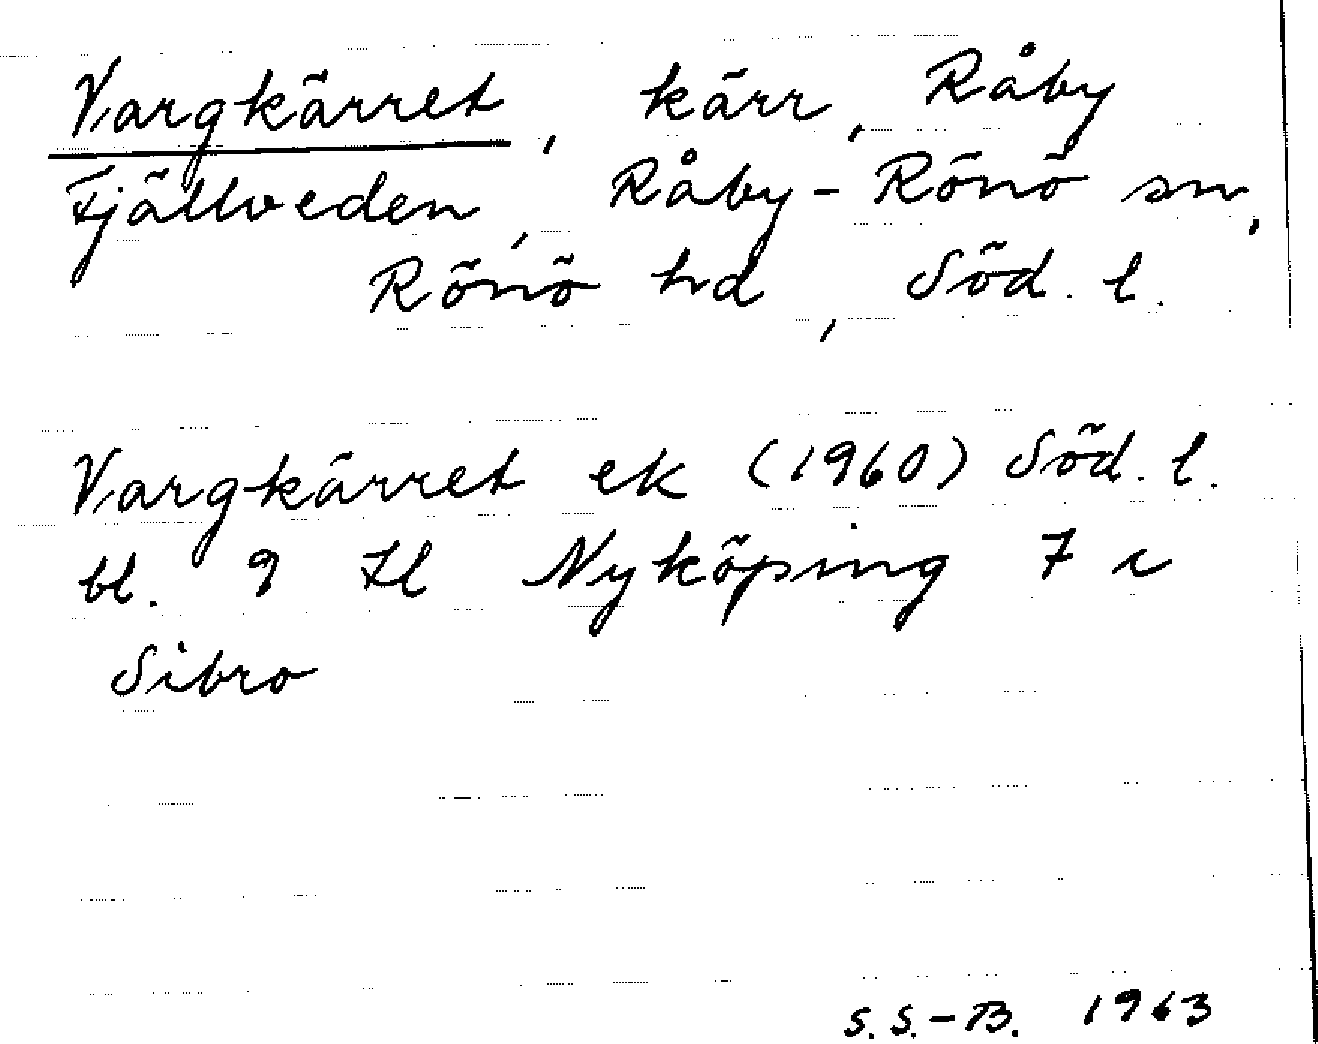 Vargkärret, kärr, Råby
Fjällveden, Råby-Rönö sn,
Rönö hd, Söd. l.
Vargkärret ek (1960) Söd. l.
bl. 9 H Nyköping 7 c
Sibro
S.S.-B. 1963